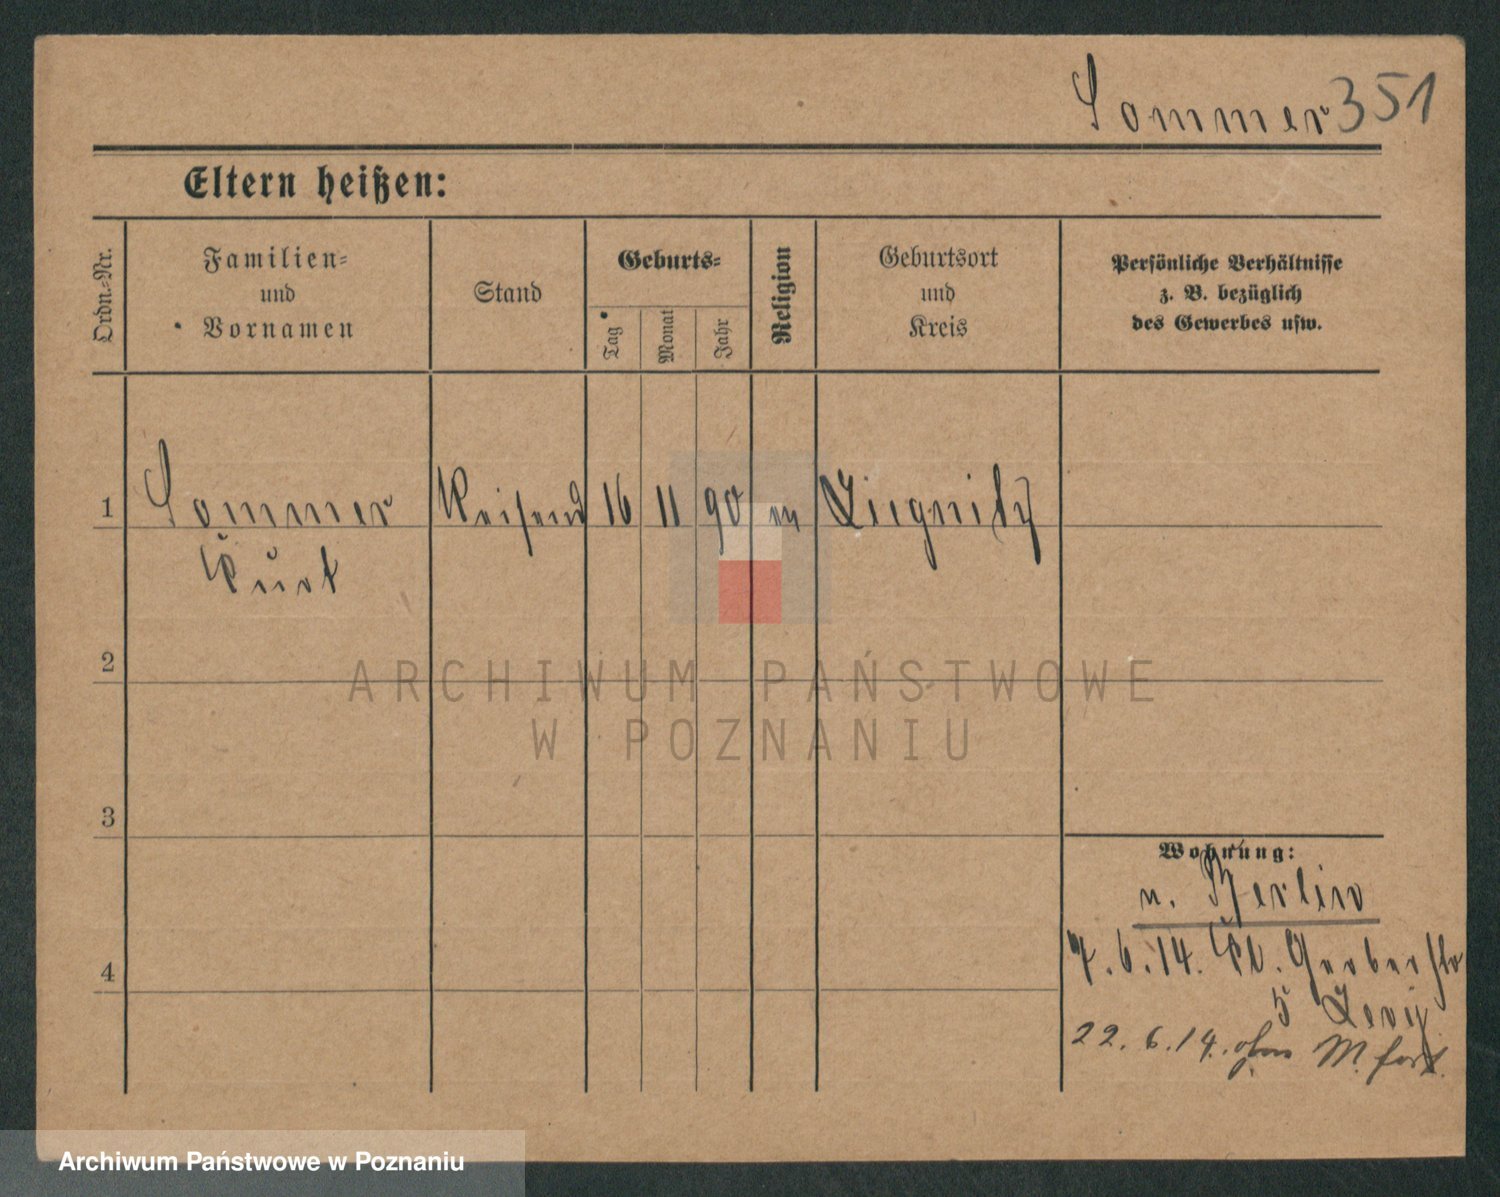 Sommer 351
Eltern heißen:
Ordn.-Nr.
Familien-
und
Vornamen
Stand
Geburts-
Tag
Monat
Jahr
Religion
Geburtsort
und
Kreis
Persönliche Verhältnisse
z. B. bezüglich
des Gewerbes usw.
1 Sommer Reisend 16 11 90 m Liegnitz
Kurt
2
3
4
Wohnung:
n. Berlin
7. 6. 14. Kl. Gerberstr
5 Levy
22. 6. 14. ohne M. fort.
ARCHIWUM PAŃSTWOWE
W POZNANIU
Archiwum Państwowe w Poznaniu